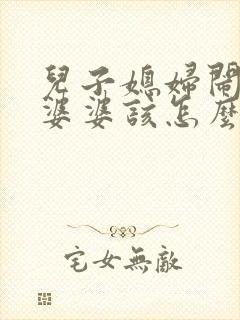 兒子媳婦鬧
婆婆該怎麼
宅女無敵